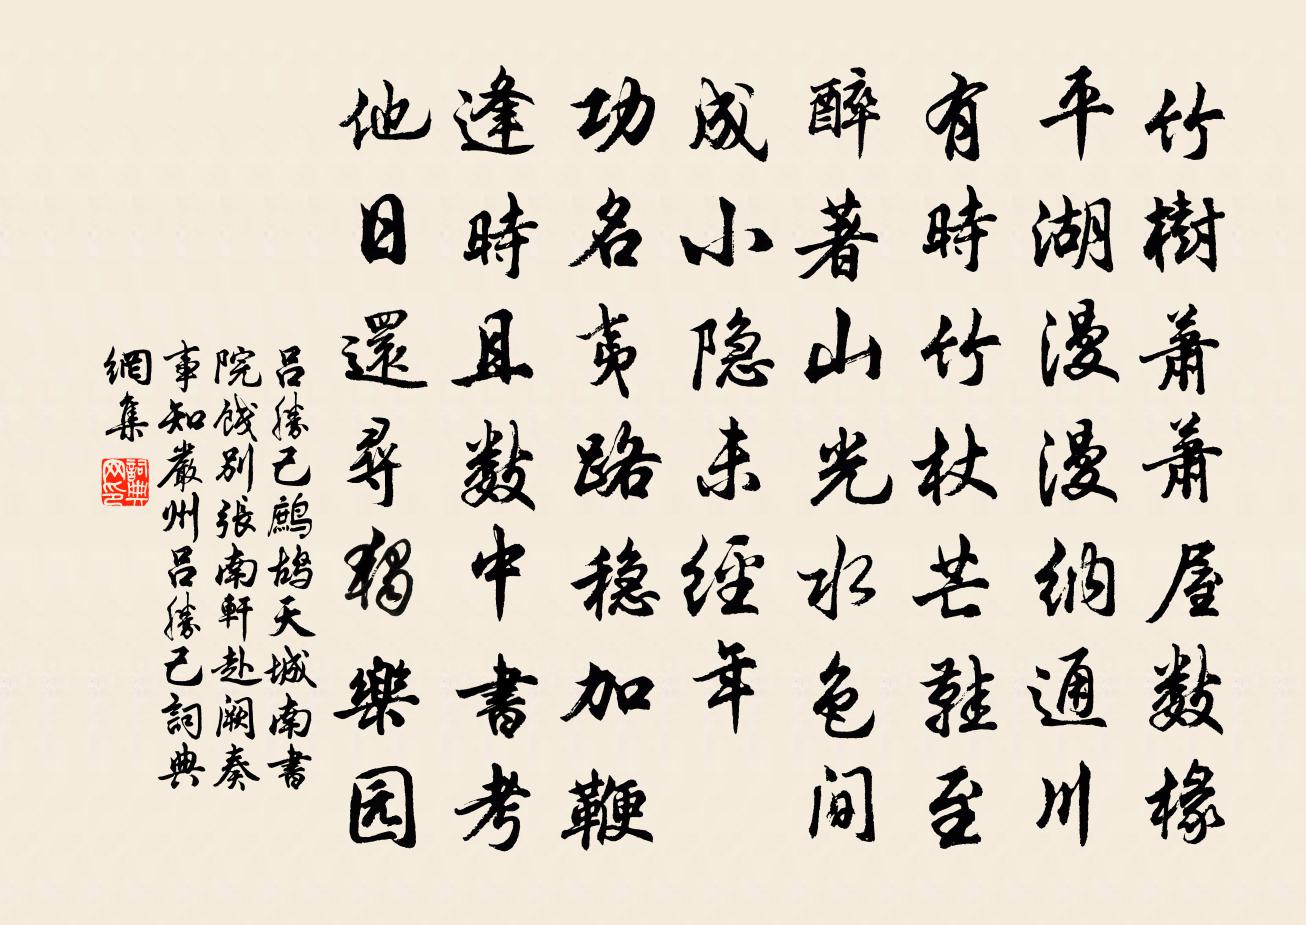 竹樹蕭蕭屋數椽
平湖漫漫納通川
有時竹杖芒鞋至
醉著山光水色間
成小隐未經年
功名夷路稳加鞭
逢時且數中書考
他日還尋獨樂园
吕勝己鷓鴣天城南書
院餞别張南軒赴阙奏
事知嚴州吕勝己詞典
網集
詞典
网印